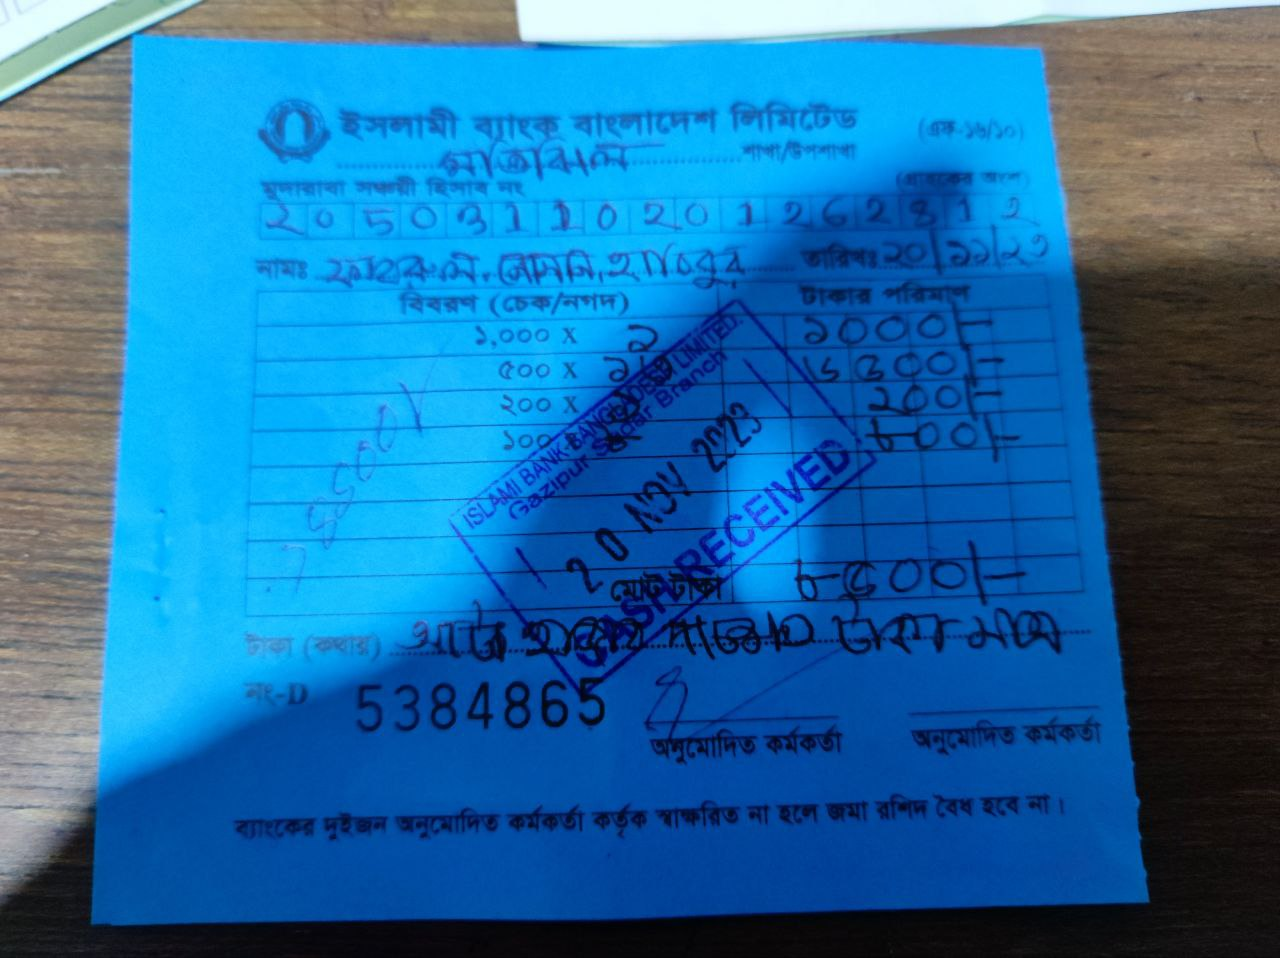 ইসলামী ব্যাংক বাংলাদেশ লিমিটেড (এফ-১৬/১০)
মতিঝিল শাখা/উপশাখা
মুদারাবা সঞ্চয়ী হিসাব নং (গ্রাহকের অংশ)
তারিখঃ ২০/১১/২৩
নামঃ
বিবরণ (চেক/নগদ) টাকার পরিমাণ
১,০০০ X ১ ১০০০/-
৫০০ X ১৩ ৬৫০০/-
২০০ X ২০০/-
১০০ ৮০০/-
ISLAMI BANK BANGLADESH LIMITED.
Gazipur Sadar Branch
20 NOV 2023
CASH RECEIVED
মোট টাকা ৮৫০০/-
টাকা (কথায়) আট হাজার পাঁচশত টাকা মাত্র
নং-D 5384865
অনুমোদিত কর্মকর্তা অনুমোদিত কর্মকর্তা
ব্যাংকের দুইজন অনুমোদিত কর্মকর্তা কর্তৃক স্বাক্ষরিত না হলে জমা রশিদ বৈধ হবে না।